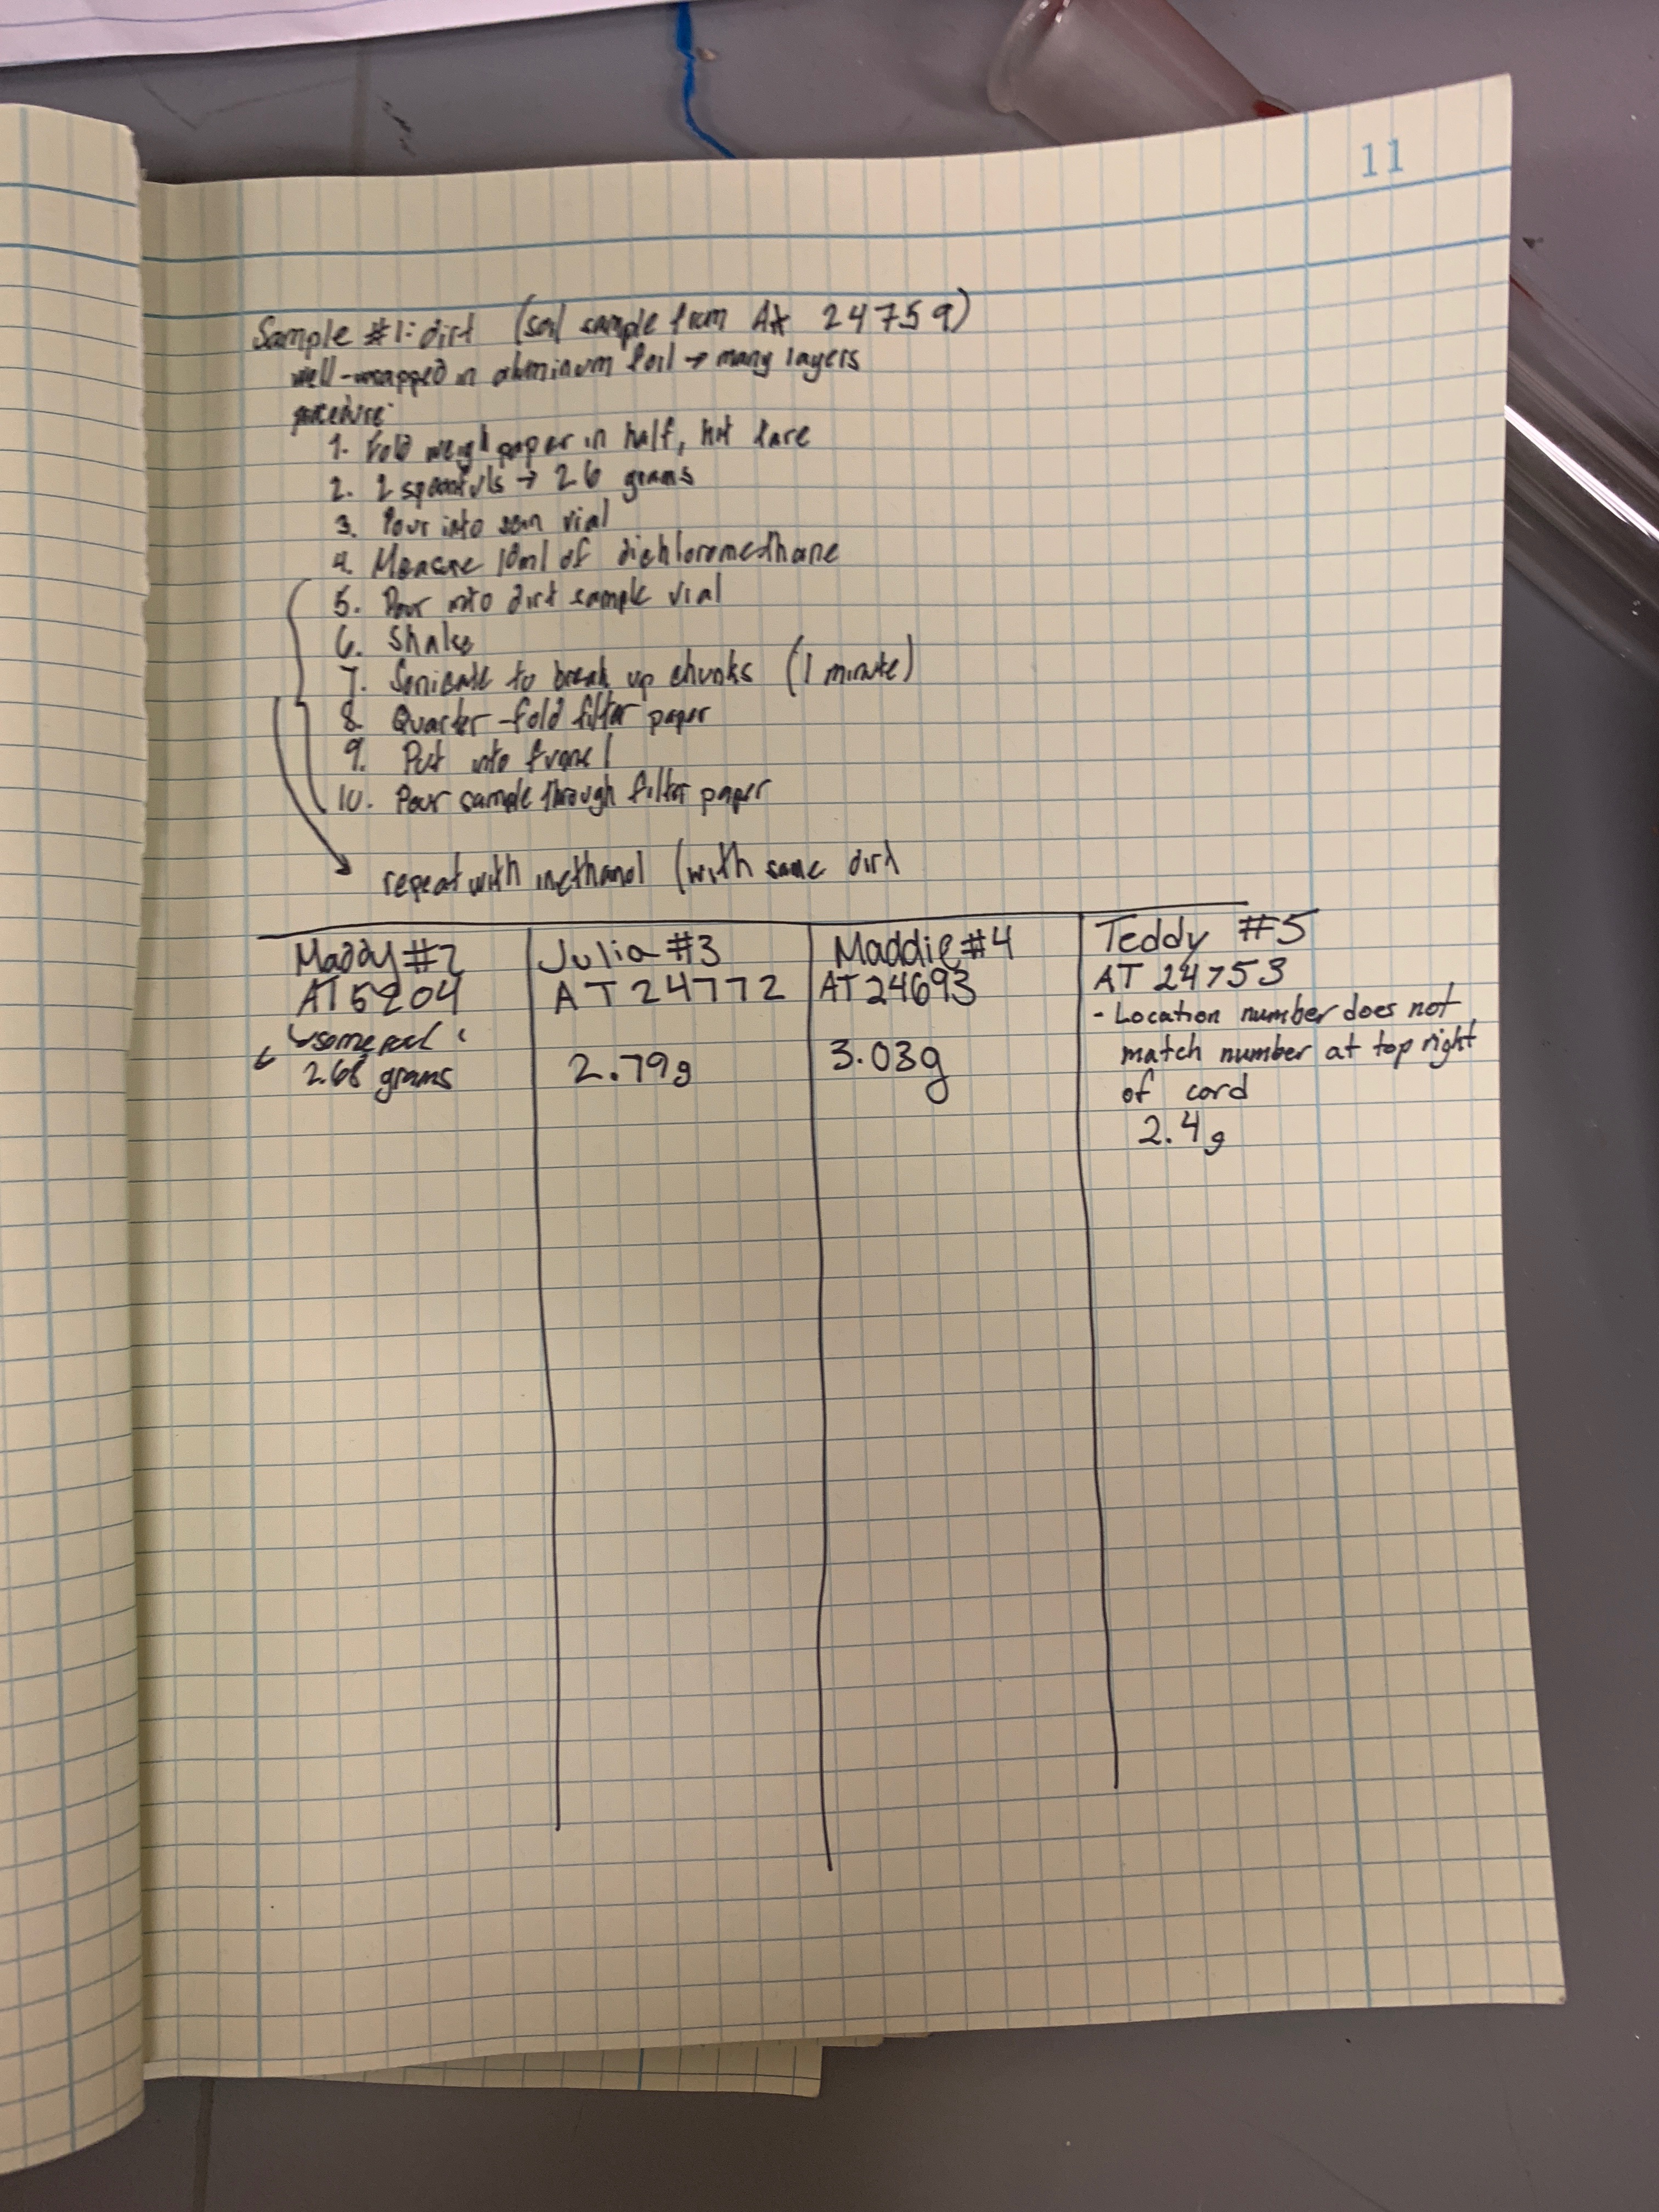 11
Sample #1: dirt (soil sample from At 24759)
well-wrapped in aluminum foil → many layers
procedure:
1. Fold weigh paper in half, hit tare
2. 2 spoonfuls → 2.6 grams
3. Pour into vial
4. Measure 10ml of dichloromethane
5. Pour into dirt sample vial
6. Shake
7. Sonicate to break up chunks (1 minute)
8. Quarter-fold filter paper
9. Put into funnel
10. Pour sample through filter paper
repeat with methanol (with same dirt
Maddy #2
AT 5204
2.68 grams
Julia #3
AT 24772
2.79g
Maddie #4
AT 24693
3.03g
Teddy #5
AT 24753
- Location number does not
match number at top right
of card
2.4g